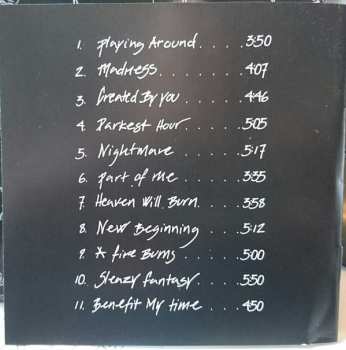 1. Playing Around. . . . 3:50
2. Madness. . . . . . . 4:07
3. Created By you . . . . 4:46
4. Darkest Hour. . . . . 5:05
5. Nightmare . . . . . 5:17
6. Part of me . . . . . 3:35
7. Heaven Will Burn. . . . 3:58
8. New Beginning . . . . 5:12
9. A fire Burns . . . . . 5:00
10. Sleazy fantasy. . . . . 5:50
11. Benefit My time . . . . 4:50